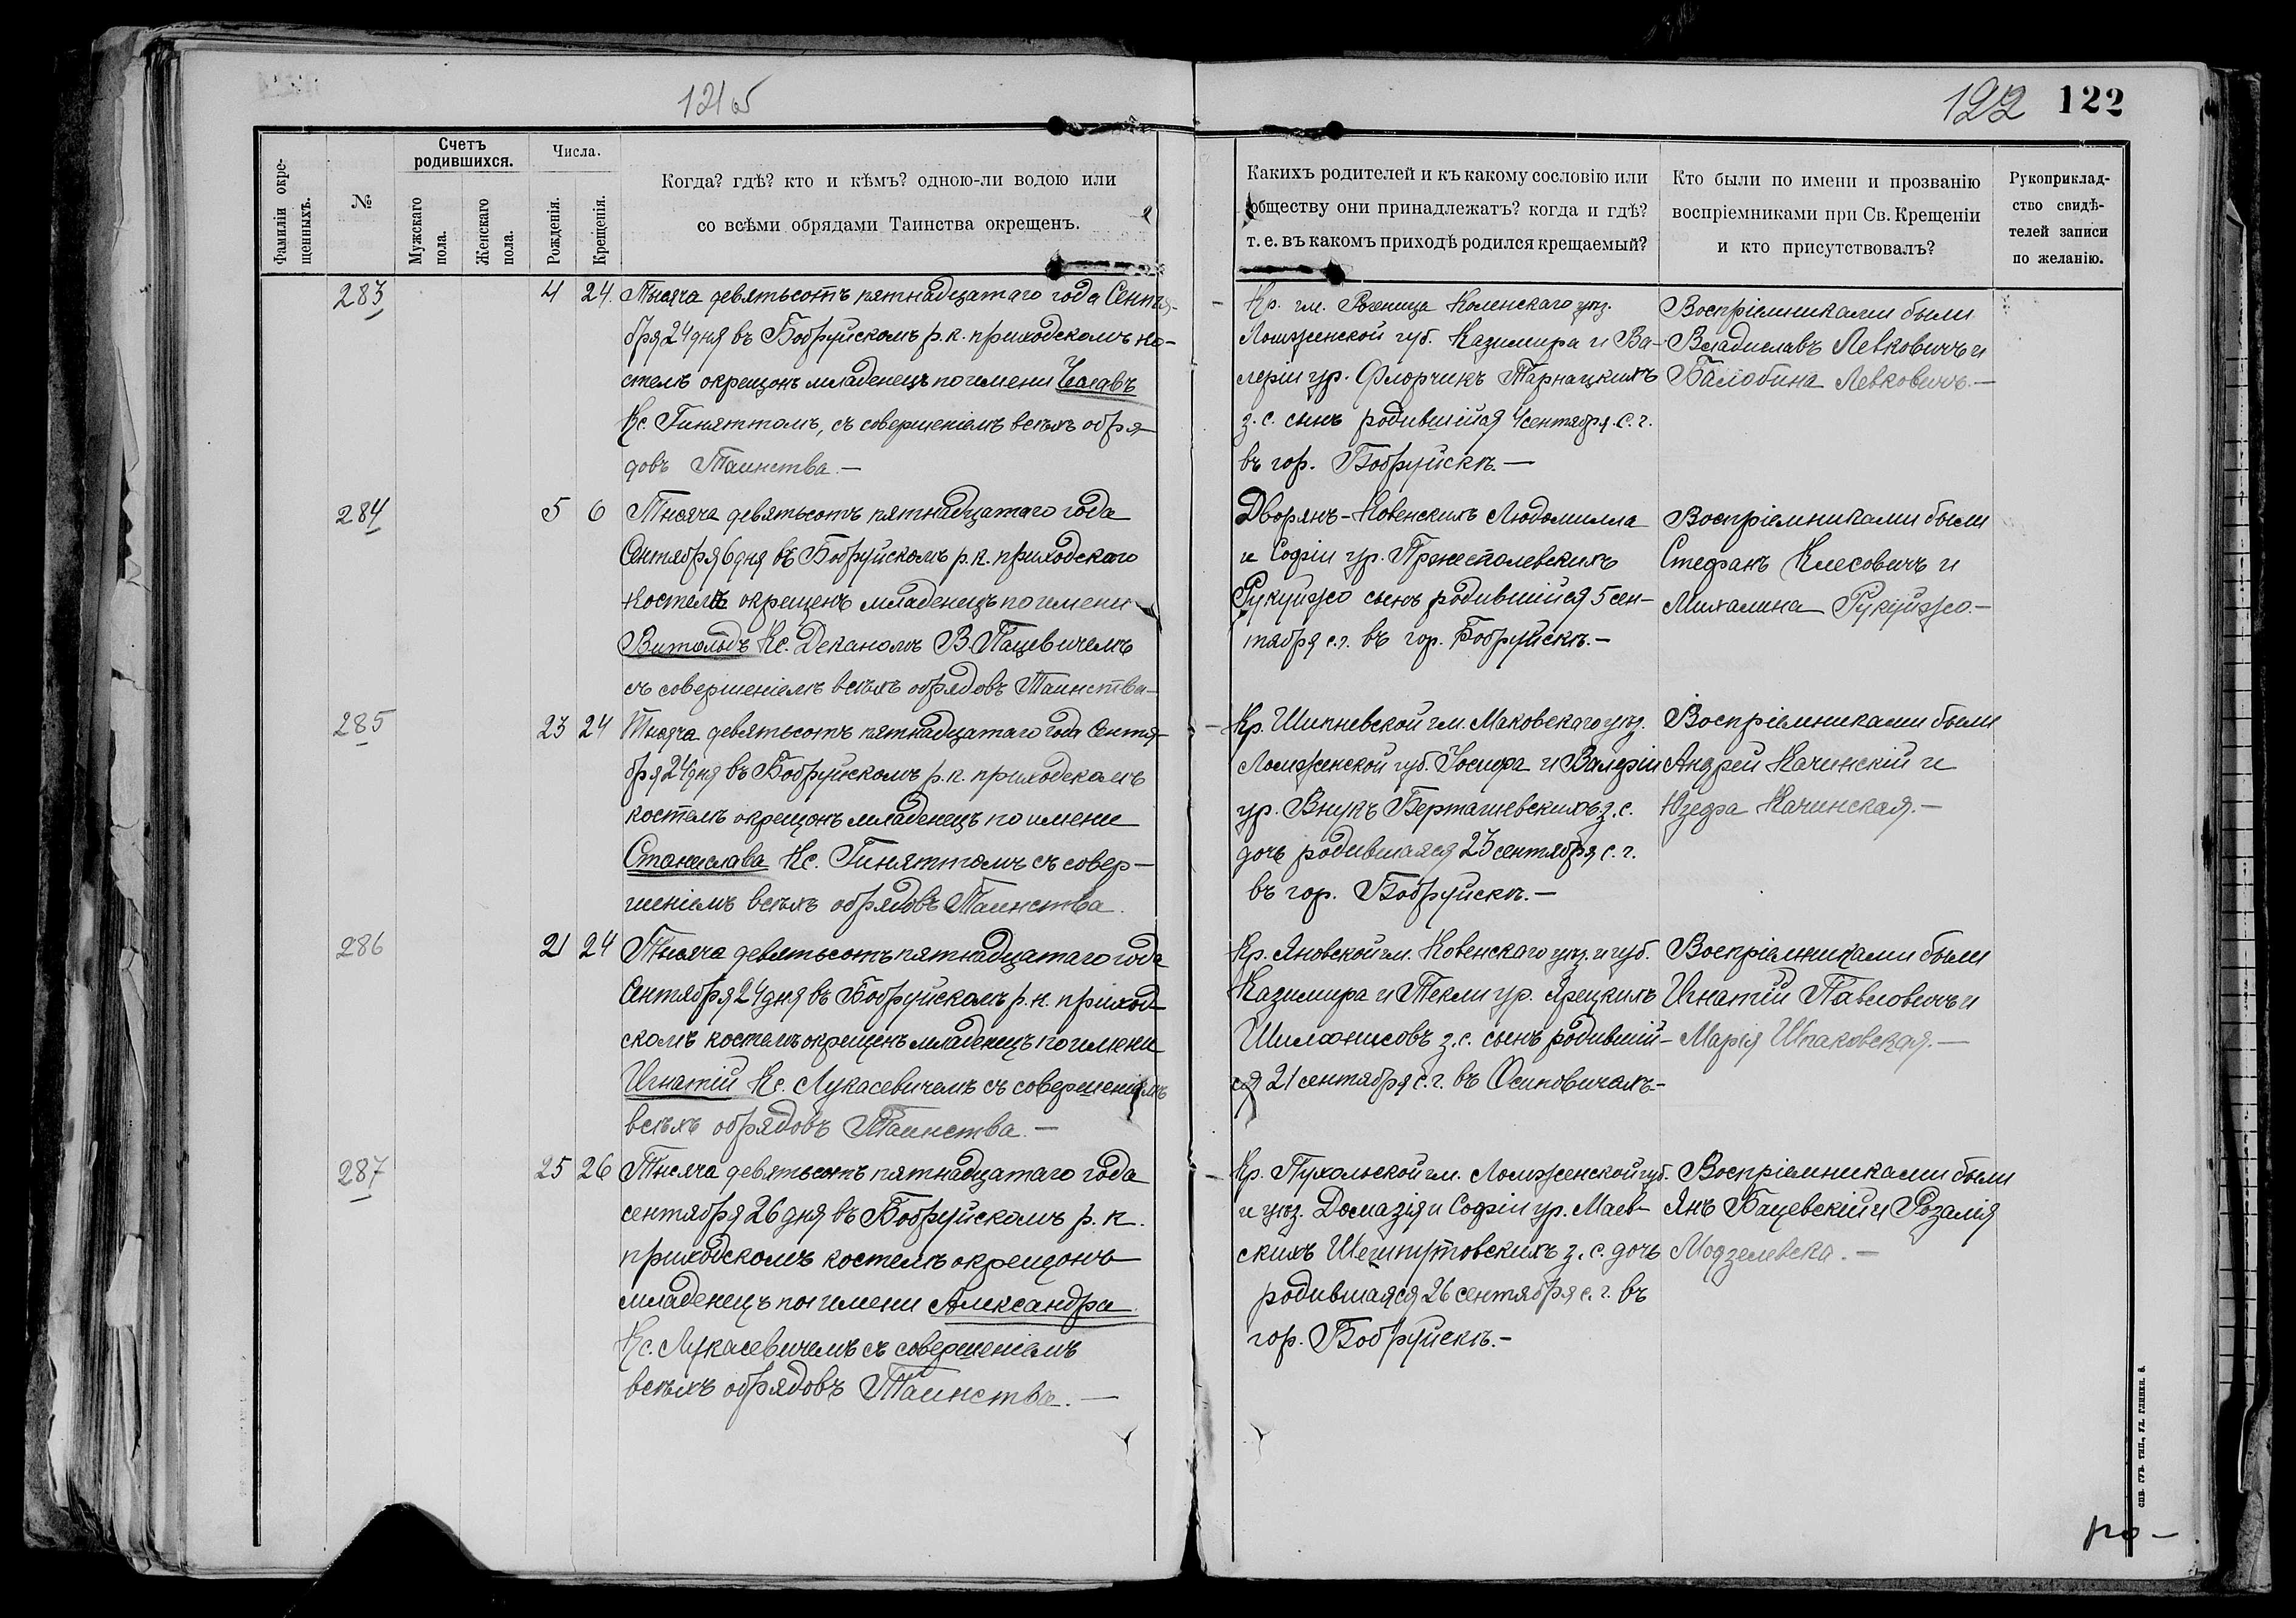 121 об
122 122
Фамиліи окре-
щенныхъ.
№
Счетъ
родившихся.
Мужскаго
пола.
Женскаго
пола.
Числа.
Рожденія.
Крещенія.
Когда? гдѣ? кто и кѣмъ? одною-ли водою или
со всѣми обрядами Таинства окрещенъ.
Какихъ родителей и къ какому сословію или
обществу они принадлежатъ? когда и гдѣ?
т. е. въ какомъ приходѣ родился крещаемый?
Кто были по имени и прозванію
воспріемниками при Св. Крещеніи
и кто присутствовалъ?
Рукоприклад-
ство свидѣ-
телей записи
по желанію.
283
4 24.
Тысяча девятьсотъ пятнадцатаго года Сентя-
бря 24 дня въ Бобруйскомъ р. к. приходскомъ ко-
стелѣ окрещонъ младенецъ по имени Чеславъ
Кс. Гиняттомъ, съ совершеніемъ всѣхъ обря-
довъ Таинства.—
Кр. гм. Рогеница Коленскаго уѣз.
Ломженской губ. Казимира и Ва-
леріи ур. Флорчикъ Тарнацкихъ
з. с. сынъ родившійся 4 сентября с. г.
въ гор. Бобруйскѣ.—
Воспріемниками были
Владиславъ Левковичъ и
Балбина Левковичъ.—
284
5 6
Тысяча девятьсотъ пятнадцатаго года
Сентября 6 дня въ Бобруйскомъ р. к. приходскаго
костелѣ окрещенъ младенецъ по имени
Витольдъ Кс. Деканомъ В. Пацевичемъ
съ совершеніемъ всѣхъ обрядовъ Таинства—
Дворянъ-Ковенскихъ Людомилла
и Софіи ур. Пржестолевскихъ
Рукуйжо сынъ родившійся 5 сен-
тября с. г. въ гор. Бобруйскѣ.—
Воспріемниками были
Стефанъ Клесовичъ и
Михалина Рукуйжо.—
285
23 24
Тысяча девятьсотъ пятнадцатаго года Сентя-
бря 24 дня въ Бобруйскомъ р. к. приходскомъ
костелѣ окрещонъ младенецъ по имени
Станислава Кс. Гиняттомъ съ совер-
шеніемъ всѣхъ обрядовъ Таинства.
Кр. Шипневской гм. Маковскаго уѣз.
Ломженской губ. Іосифа и Валеріи
ур. Внукъ Берташевскихъ з. с.
дочь родившаяся 23 сентября с. г.
въ гор. Бобруйскѣ.—
Воспріемниками были
Андрей Качинскій и
Юзефа Качинская.—
286
21 24
Тысяча девятьсотъ пятнадцатаго года
Сентября 24 дня въ Бобруйскомъ р. к. приход-
скомъ костелѣ окрещенъ младенецъ по имени
Игнатій Кс. Лукасевичемъ съ совершеніемъ
всѣхъ обрядовъ Таинства.—
Кр. Яновской гм. Ковенскаго уѣз. и губ.
Казимира и Текли ур. Ярецкихъ
Шилонисовъ з. с. сынъ родившій-
ся 21 сентября с. г. въ Осиповичахъ—
Воспріемниками были
Игнатій Павловичъ и
Марія Шпаковская.—
287
25 26
Тысяча девятьсотъ пятнадцатаго года
сентября 26 дня въ Бобруйскомъ р. к.
приходскомъ костелѣ окрещонъ
младенецъ по имени Александра
Кс. Лукасевичемъ съ совершеніемъ
всѣхъ обрядовъ Таинства.—
Кр. Пухальской гм. Ломженской губ.
и уѣз. Домазія и Софіи ур. Маев-
скихъ з. с. дочь
родившаяся 26 сентября с. г. въ
гор. Бобруйскѣ.—
Воспріемниками были
Янъ Бацевскій и Розалія
Модзелевска.—
СПБ. ГУБ. ТИП., УЛ. ГЛИНКИ, 6.